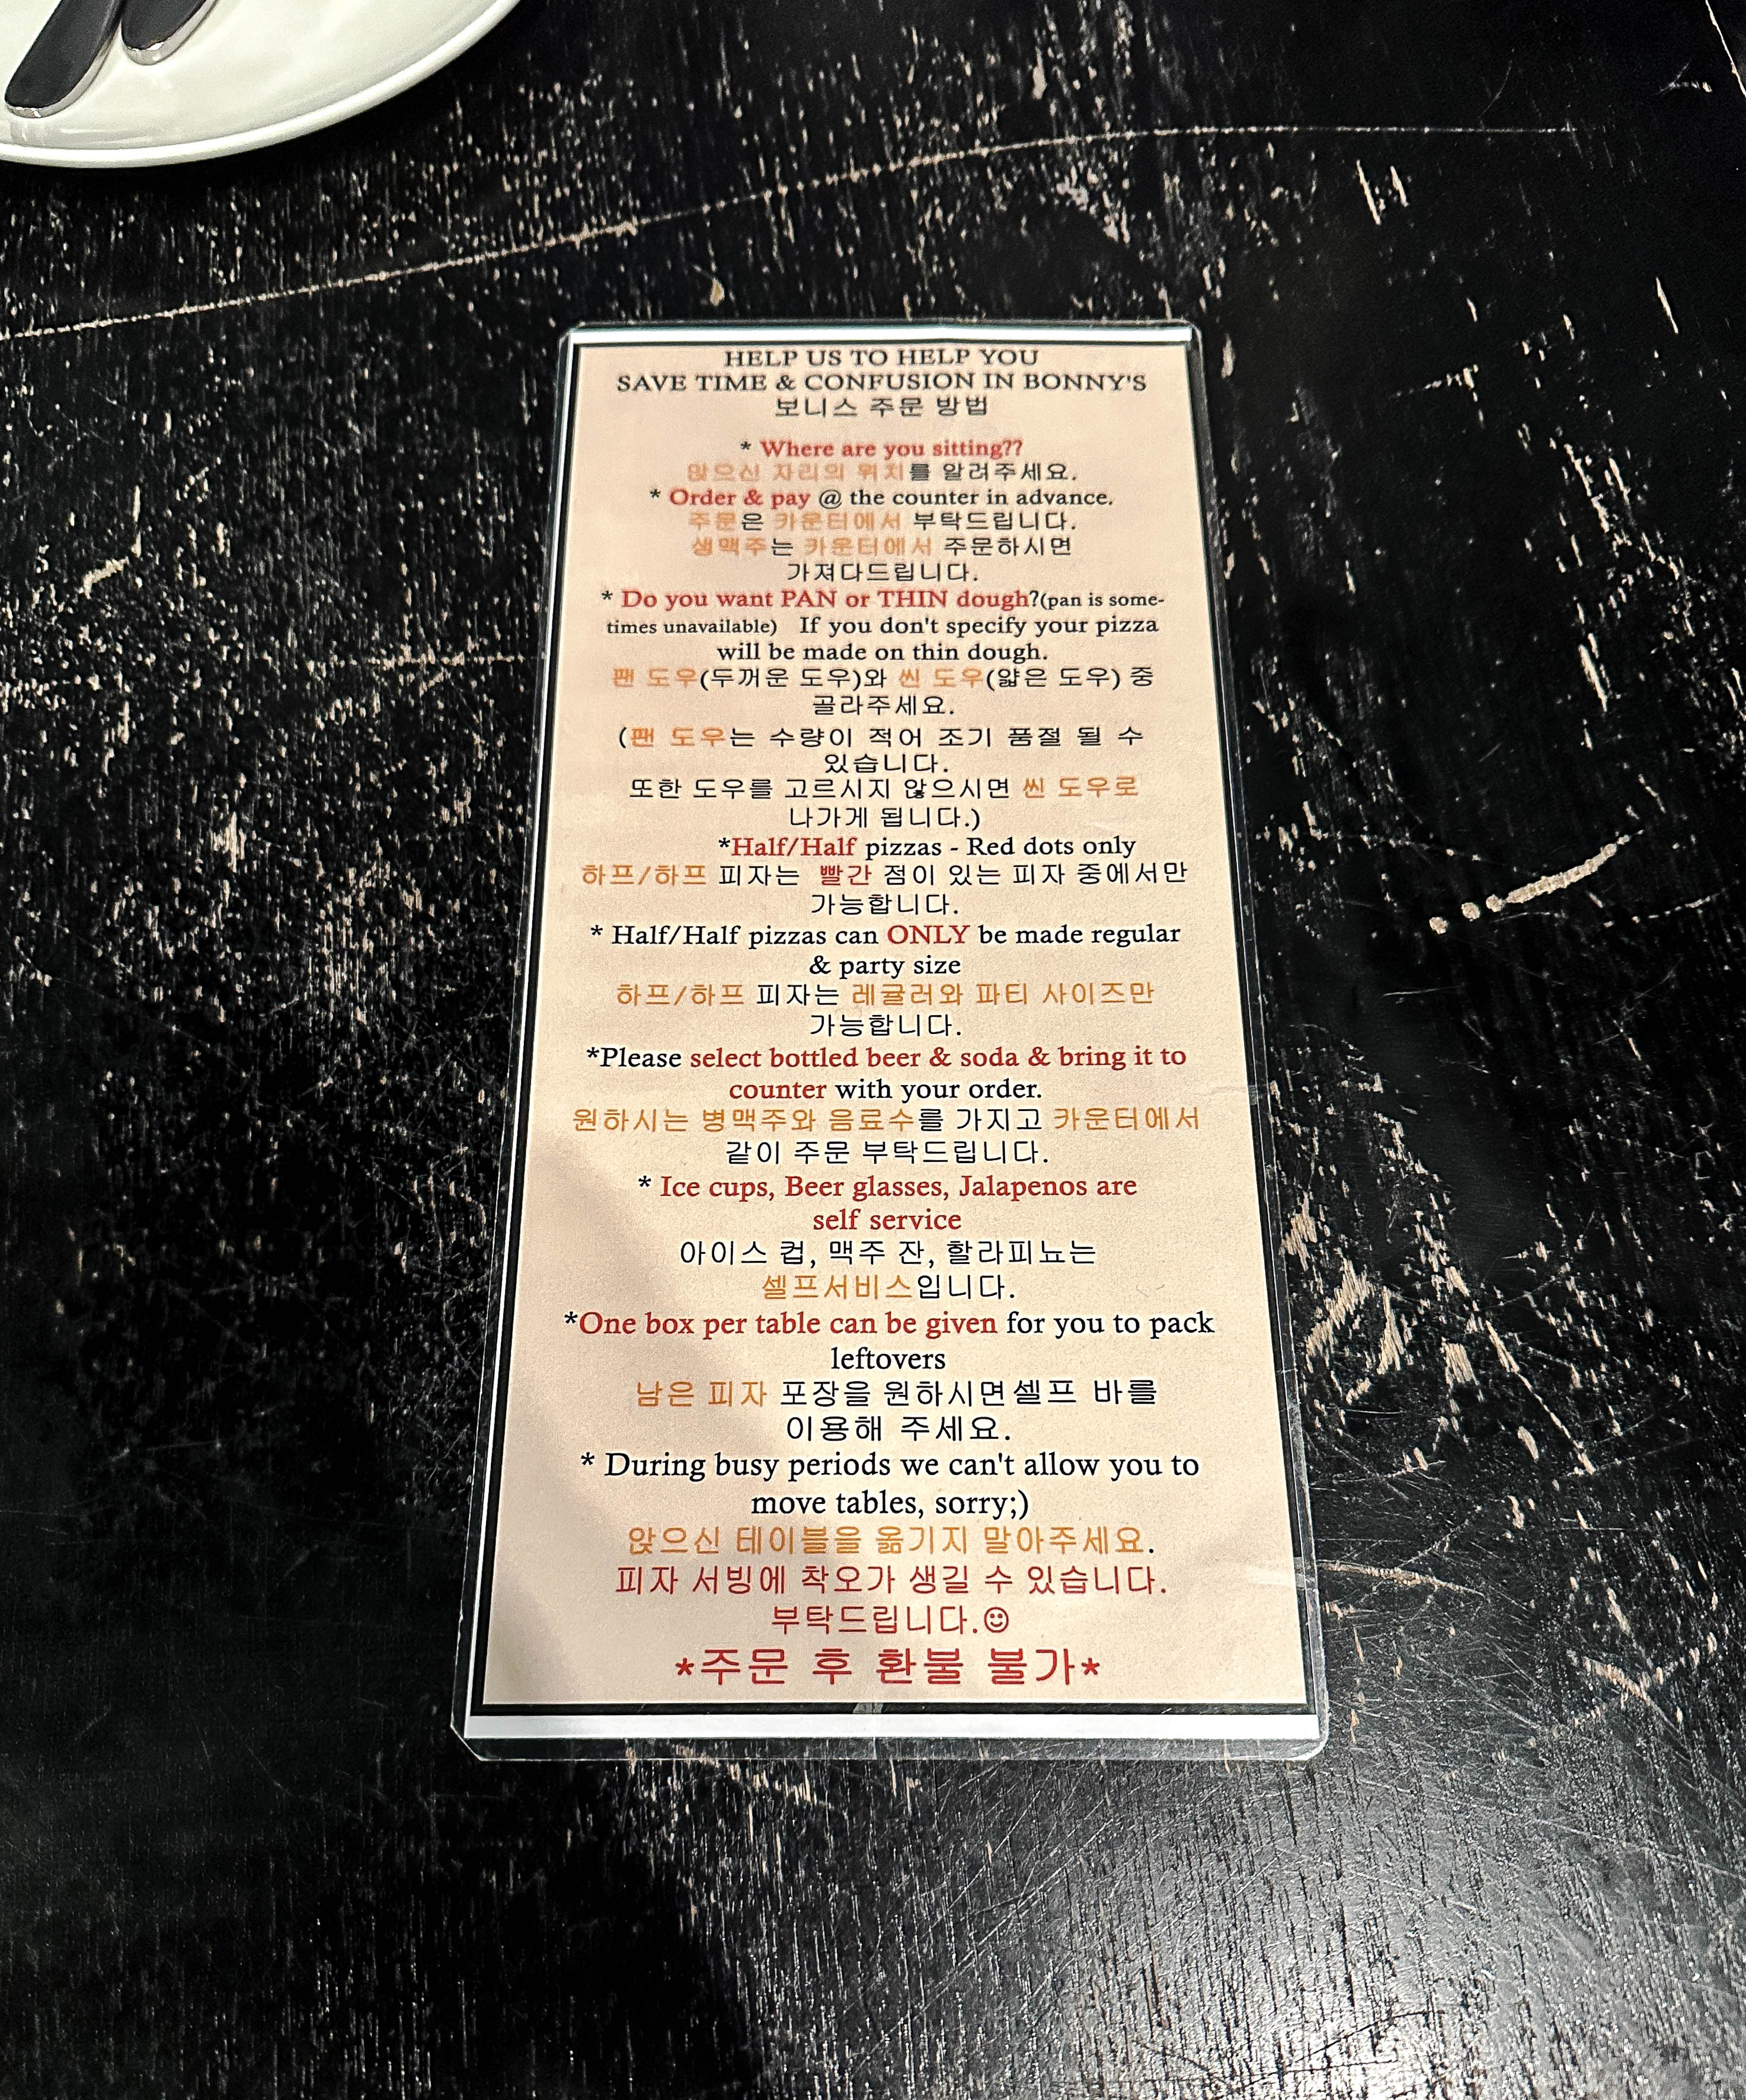 HELP US TO HELP YOU
SAVE TIME & CONFUSION IN BONNY'S
보니스 주문 방법
* Where are you sitting??
앉으신 자리의 위치를 알려주세요.
* Order & pay @ the counter in advance.
주문은 카운터에서 부탁드립니다.
생맥주는 카운터에서 주문하시면
가져다드립니다.
* Do you want PAN or THIN dough?(pan is some-
times unavailable) If you don't specify your pizza
will be made on thin dough.
팬 도우(두꺼운 도우)와 씬 도우(얇은 도우) 중
골라주세요.
(팬 도우는 수량이 적어 조기 품절 될 수
있습니다.
또한 도우를 고르시지 않으시면 씬 도우로
나가게 됩니다.)
*Half/Half pizzas - Red dots only
하프/하프 피자는 빨간 점이 있는 피자 중에서만
가능합니다.
* Half/Half pizzas can ONLY be made regular
& party size
하프/하프 피자는 레귤러와 파티 사이즈만
가능합니다.
*Please select bottled beer & soda & bring it to
counter with your order.
원하시는 병맥주와 음료수를 가지고 카운터에서
같이 주문 부탁드립니다.
* Ice cups, Beer glasses, Jalapenos are
self service
아이스 컵, 맥주 잔, 할라피뇨는
셀프서비스입니다.
*One box per table can be given for you to pack
leftovers
남은 피자 포장을 원하시면셀프 바를
이용해 주세요.
* During busy periods we can't allow you to
move tables, sorry;)
앉으신 테이블을 옮기지 말아주세요.
피자 서빙에 착오가 생길 수 있습니다.
부탁드립니다.☺
*주문 후 환불 불가*